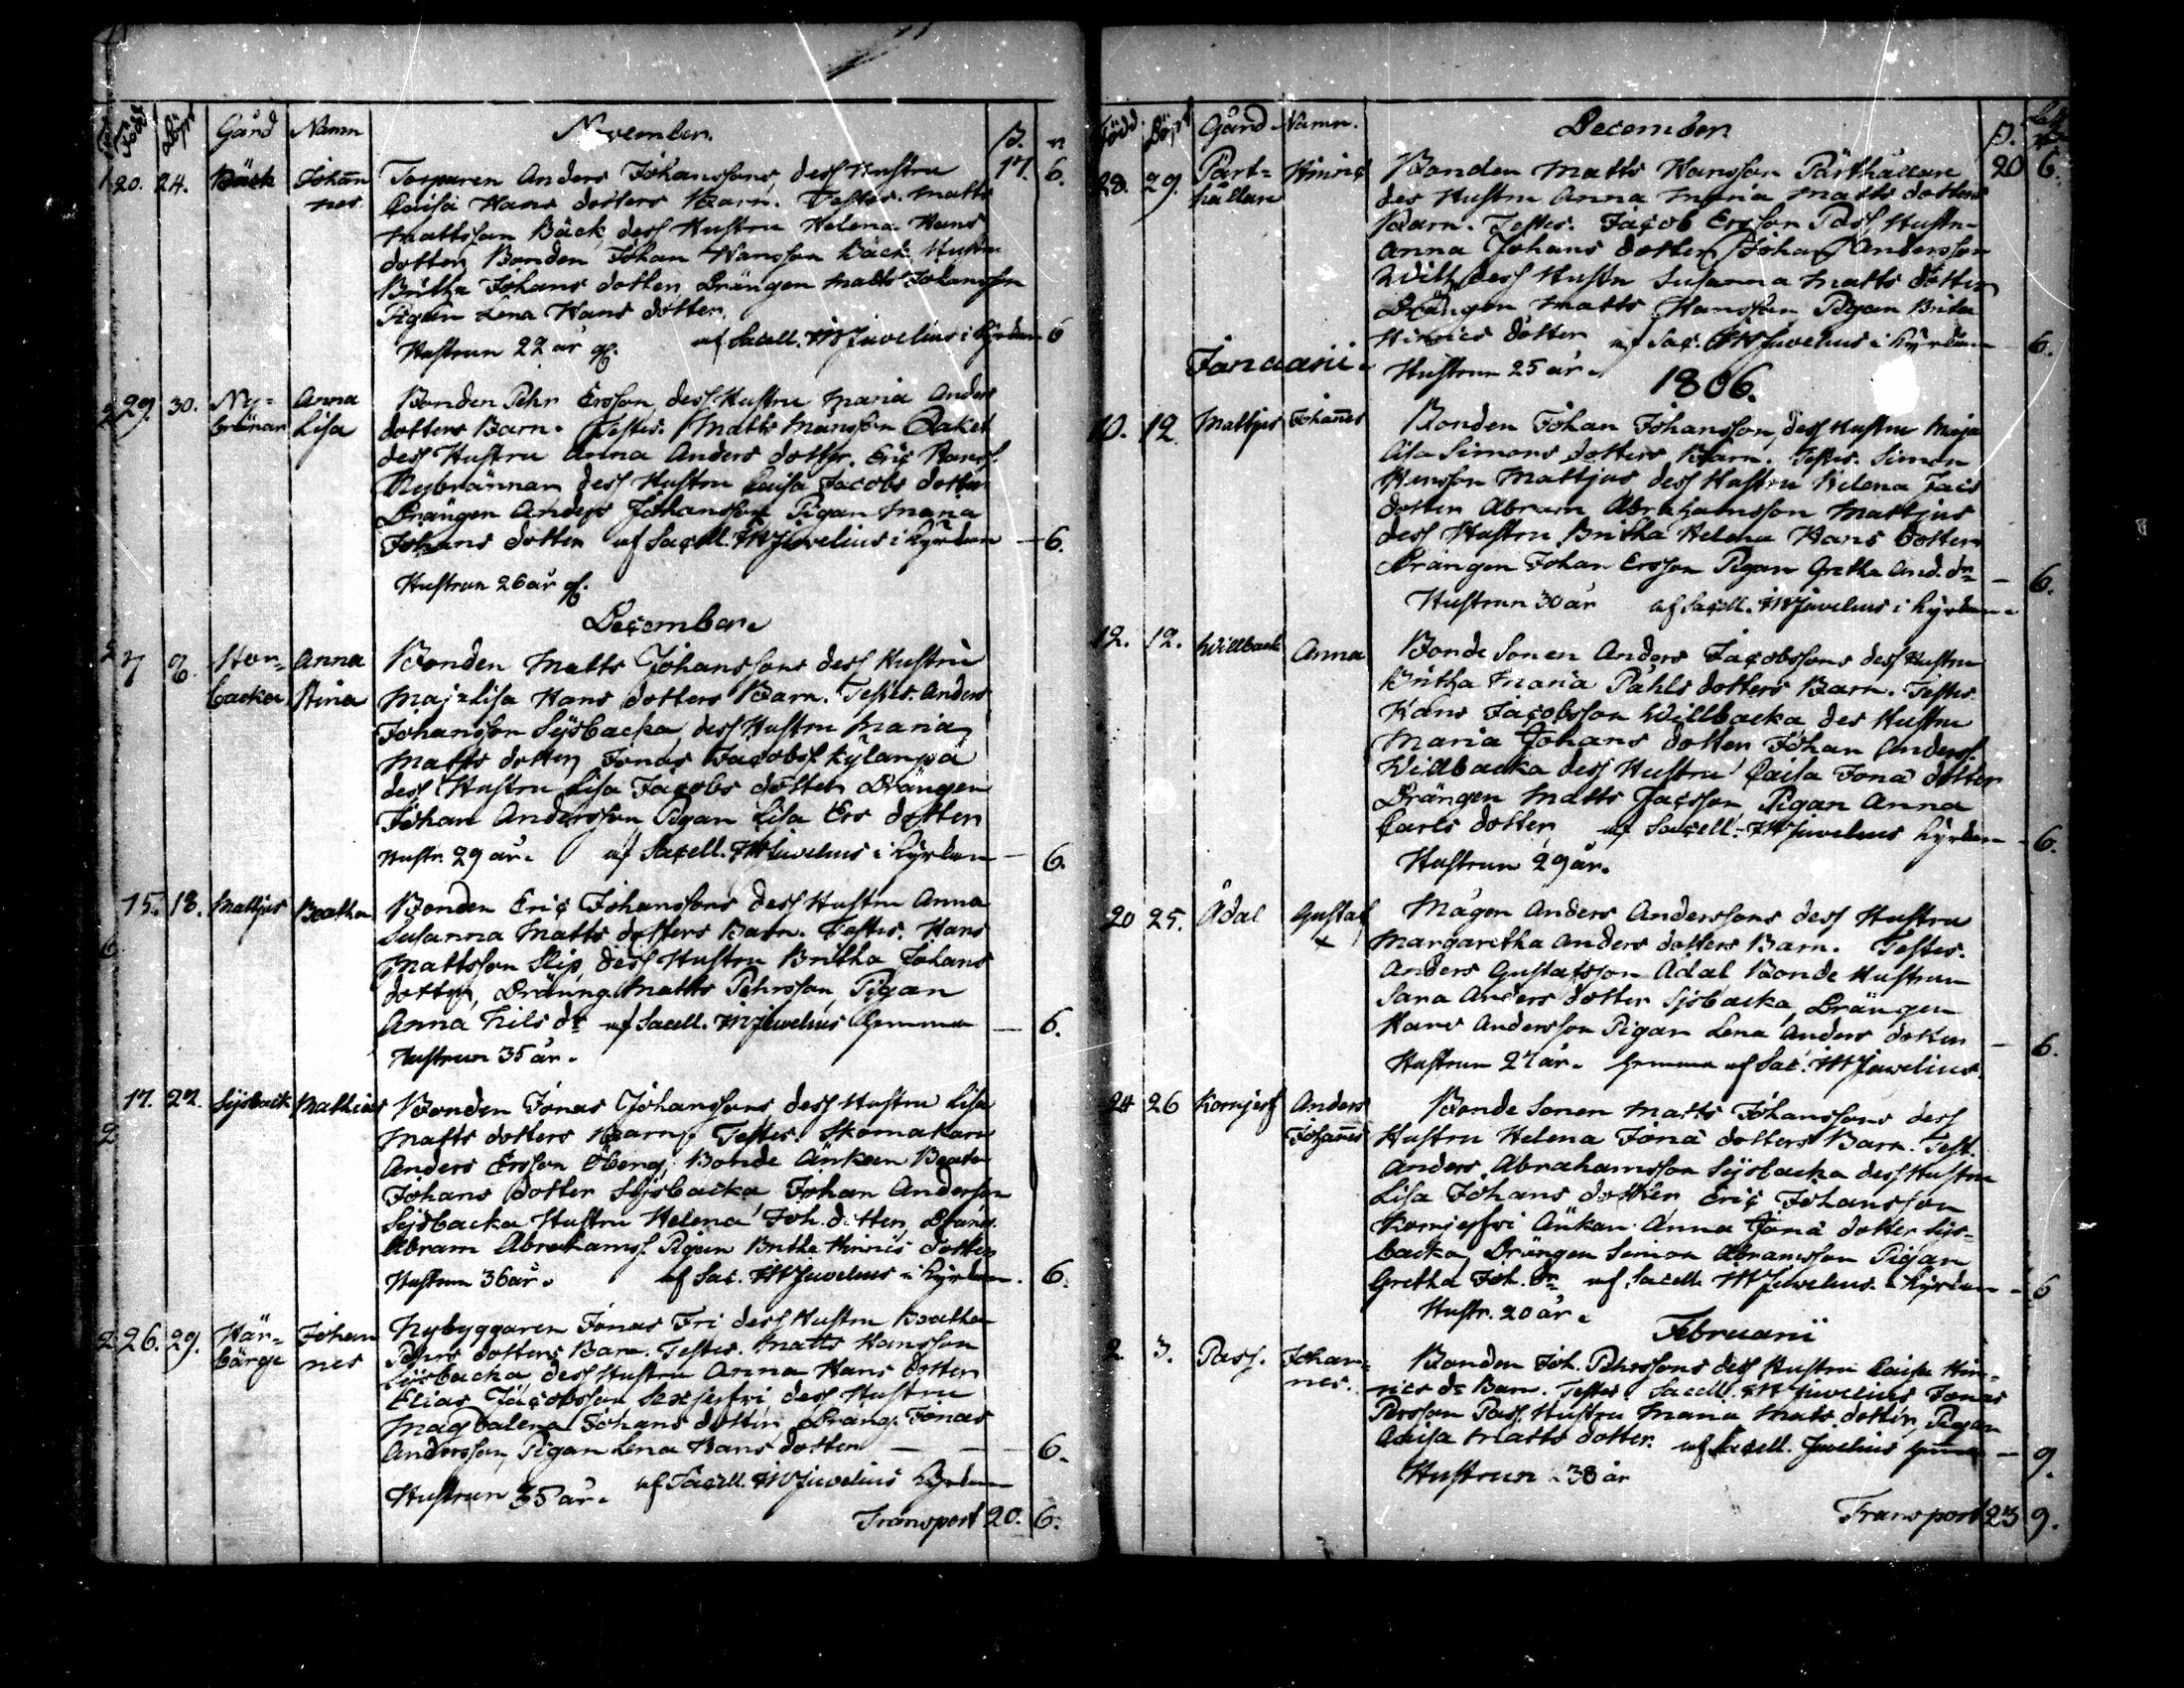 Född Döpt Gård Namn November. β. n
20. 24. Bäck Johannes Torparen Anders Johanssons, dess Hustru 17. 6.
Caisa Hans dotters Barn. Testes. Matts
Mattsson Bäck, dess Hustru Helena Hans
dotter, Bonden Johan Hansson Bäck, Hustru
Britha Johans dotter, Drängen Matts Johansson
Pigan Lena Hans dotter.
Hustrun 22 år af Sacell. Juvelius i Kyrkan 6
29. 30. Ny- Anna Bonden Pehr Ersson, dess Hustru Maria Anders
brännar Lisa dotters Barn. Testes. Matts Mansson
dess Hustru Anna Anders dotter. Eric Hanss.
Nybrännar dess Hustru Caisa Jacobs dotter
Drängen Anders Johansson Pigan Maria
Johans dotter af Sacell. Juvelius i Kyrkan — 6.
Hustrun 26 år
December.
7 8. Hor- Anna Bonden Matts Johanssons dess Hustru
backa Stina Maja Lisa Hans dotters Barn. Testes. Anders
Johansson Sysbacka, dess Hustru Maria
Matts dotter, Jonas Jacobss Kylänpä
dess Hustru Lisa Jacobs dotter Drängen
Johan Andersson Pigan Lisa Ers dotter
Hustr. 29 år. af Sacell. Juvelius i Kyrkan — 6.
15. 18. Mattjus Beatha Bonden Eric Johanssons dess Hustru Anna
Susanna Matts dotters Barn. Testes. Hans
Mattsson Slip, dess Hustru Britha Johans
dotter, Dräng Matts Pehrsson, Pigan
Anna Nils dr af Sacell. Juvelius hemma — 6.
Hustrun 35 år.
17. 22. Sysback Mathias Bonden Jonas Johanssons dess Hustru Lisa
Matts dotters Barn. Testes. Skomakaren
Anders Ersson Öberg, Bonde Ankan Beata
Johans dotter Sysbacka Johan Andersson
Sysbacka Hustru Helena Joh. dotter, Dräng.
Abram Abrahamss. Pigan Britha Hinrics dotter
Hustrun 36 år. af Sac. Juvelius i Kyrkan. 6.
26. 29. Här- Johan Nybyggaren Jonas Fri dess Hustru Beatha
bärge nes Pehrs dotters Barn. Testes. Matts Hansson
Sysbacka, dess Hustru Anna Hans dotter
Elias Jacobsson Sexjesfri dess Hustru
Magdalena Johans dotter, Dräng. Jonas
Andersson, Pigan Lena Hans dotter — — 6.
Hustrun 35 år. af Sacell. Juvelius Kyrkan
Transport 20. 6.
Född. Döpt Gård Namn. December β.
28. 29. Pärt- Hinric Bonden Matts Hansson Pärthällan 20 6.
hällan des Hustru Anna Maria Matts dotters
Barn. Testes. Jacob Ersson Pass Hustru
Anna Johans dotter, Johan Andersson
Will, dess Hustru Susanna Matts dotter
Drängen Matts Hansson Pigan Brita
Hinrics dotter af Sac. Juvelius i Kyrkan — 6.
Hustrun 25 år.
Januarii. 1806.
10. 12. Mattjus Johannes Bonden Johan Johansson, dess Hustru Maja
Cisa Simons dotters Barn. Testes. Simon
Hansson Mattjus dess Hustru Helena Jacs
dotter Abram Abrahamsson Mattjus
dess Hustru Britha Helena Hans dotter
Drängen Johan Ersson Pigan Gretha And. dr — 6.
Hustrun 30 år af Sacell. Juvelius i Kyrkan.
12. 12. Willback Anna Bonde Sonen Anders Jacobssons dess Hustru
Britha Maria Påhls dotters Barn. Testes.
Hans Jacobsson Willbacka des Hustru
Maria Johans dotter Johan Anderss.
Willbacka dess Hustru Caisa Jona dotter
Drängen Matts Jacsson Pigan Anna
Carls dotter af Sacell. Juvelius Kyrkan — 6.
Hustrun 29 år.
20 25. Ådal Gustaf Mågen Anders Anderssons dess Hustru
Margaretha Anders dotters Barn. Testes.
Anders Gustafsson Ådal Bonde Hustrun
Sara Anders dotter Sysbacka, Drängen
Hans Andersson Pigan Lena Anders dotter — 6.
Hustrun 27 år. hemma af Sac. Juvelius.
24 26 Kornjesf Anders Bonde Sonen Matts Johanssons dess
Johannes Hustru Helena Jona dotters Barn. Test.
Anders Abrahamsson Sysbacka dess Hustru
Lisa Johans dotter Eric Johansson
Kornjesfri Ankan Anna Jona dotter Sys-
backa, Drängen Simon Abramsson Pigan
Gretha Joh. dr af Sacell. Juvelius. i Kyrkan — 6
Hustr. 20 år.
Februarii
2 3. Pass. Johan- Bonden Joh. Pehrssons dess Hustru Caisa Hin-
nes. rics dr Barn. Testes Sacell. Juvelius Jonas
Persson Pass. Hustru Maria Mats dotter, Pigan
Caisa Matts dotter. af Sacell. Juvelius hemma — 9.
Hustrun 38 år
Transport 23 9.